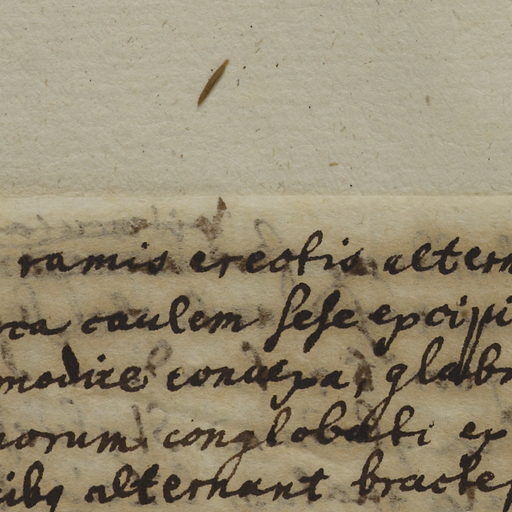 ramis erectis altern
ca caulem sese excipi
modice convexa, glabr
norum conglobati ex
cibq alternant bracte